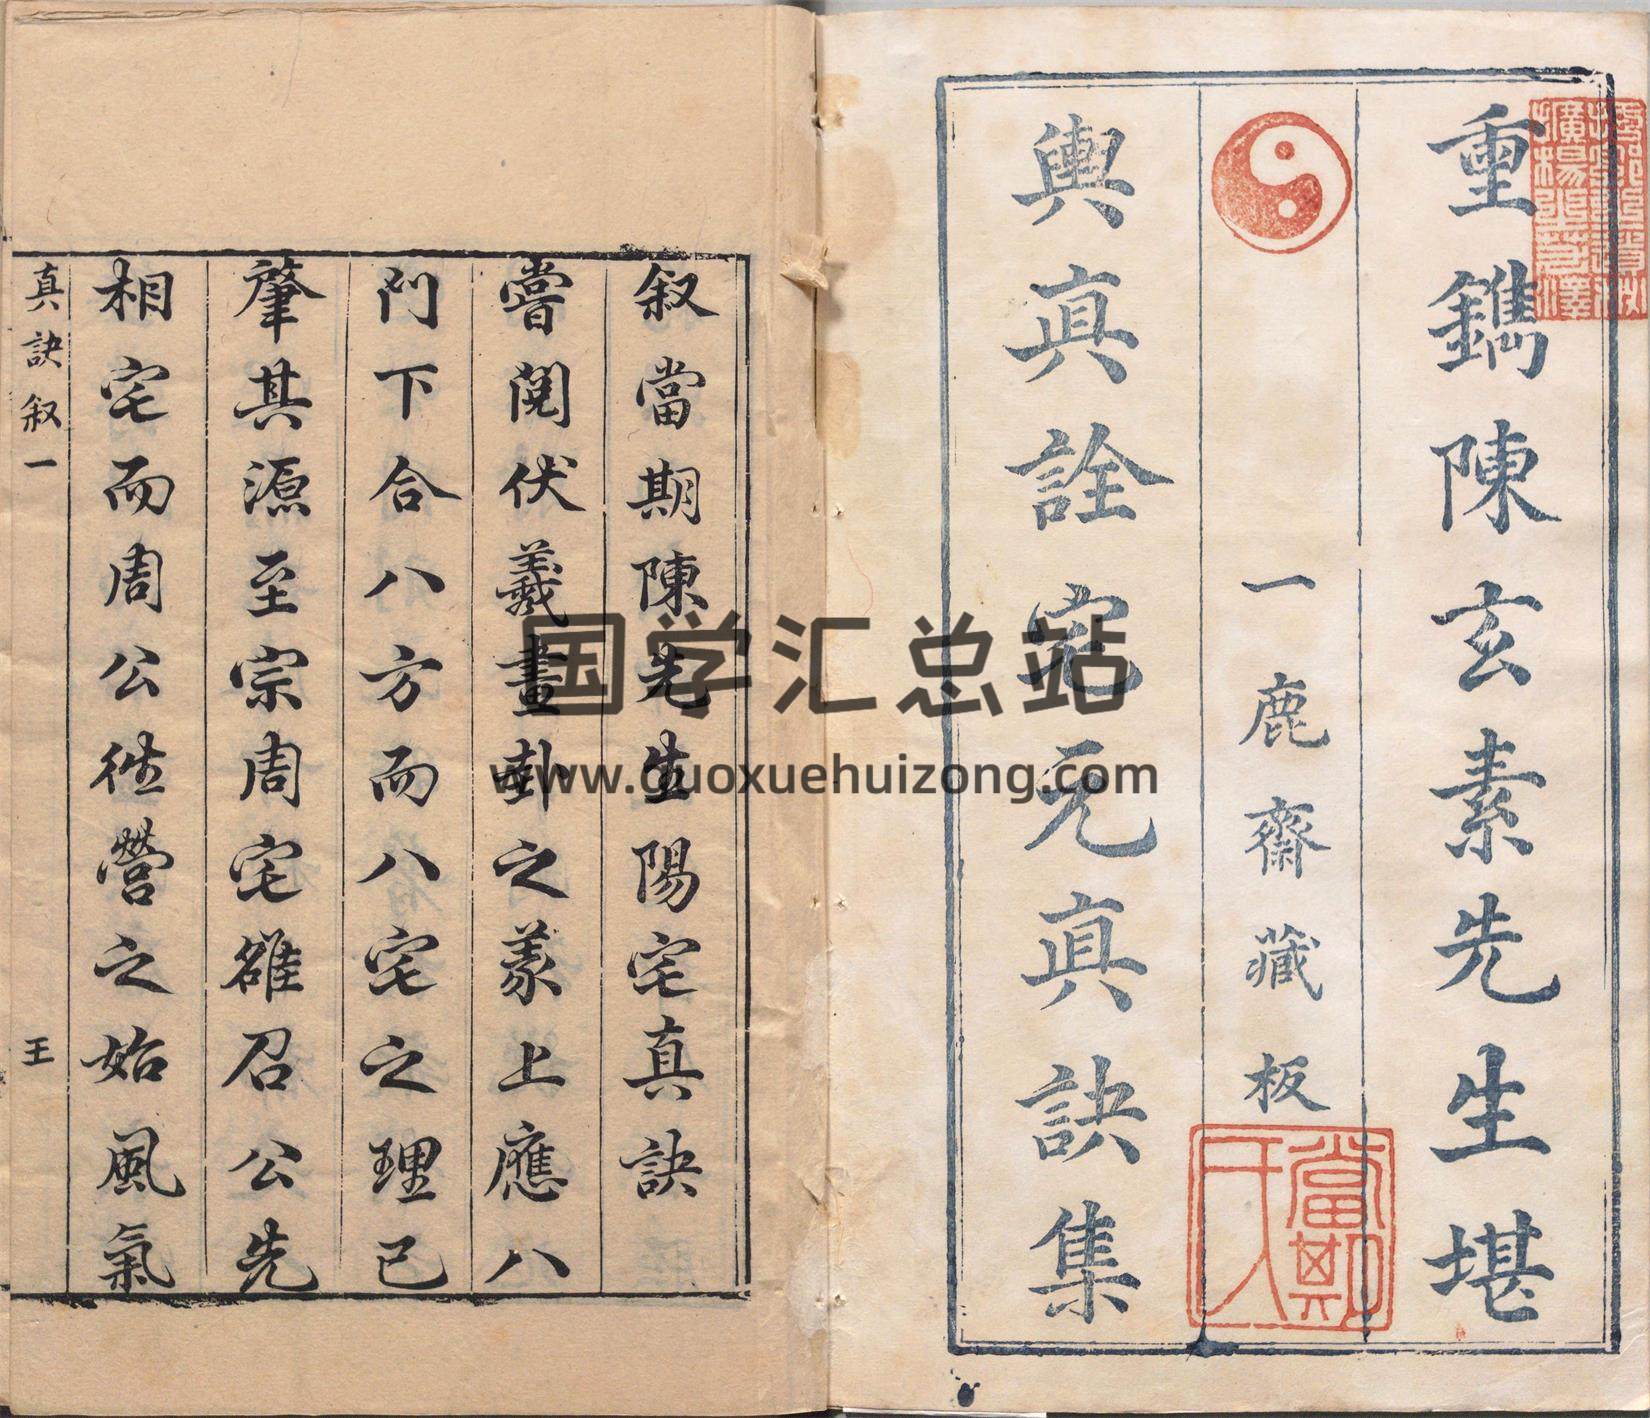 重鐫陳玄素先生堪
一鹿齋藏板
輿真詮宅元真訣集
當期
敘當期陳先生陽宅真訣
嘗閱伏羲畫卦之義上應八
門下合八方而八宅之理已
肇其源至宗周宅雒召公先
相宅而周公徃營之始風氣
真訣敘一
王
国学汇总站
www.guoxuehuizong.com